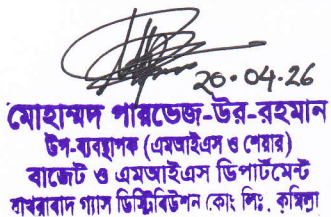 20-04-26
মোহাম্মদ পারভেজ-উর-রহমান
উপ-ব্যবস্থাপক (এমআইএস ও শেয়ার)
বাজেট ও এমআইএস ডিপার্টমেন্ট
বাখরাবাদ গ্যাস ডিস্ট্রিবিউশন কোং লিঃ, কুমিল্লা